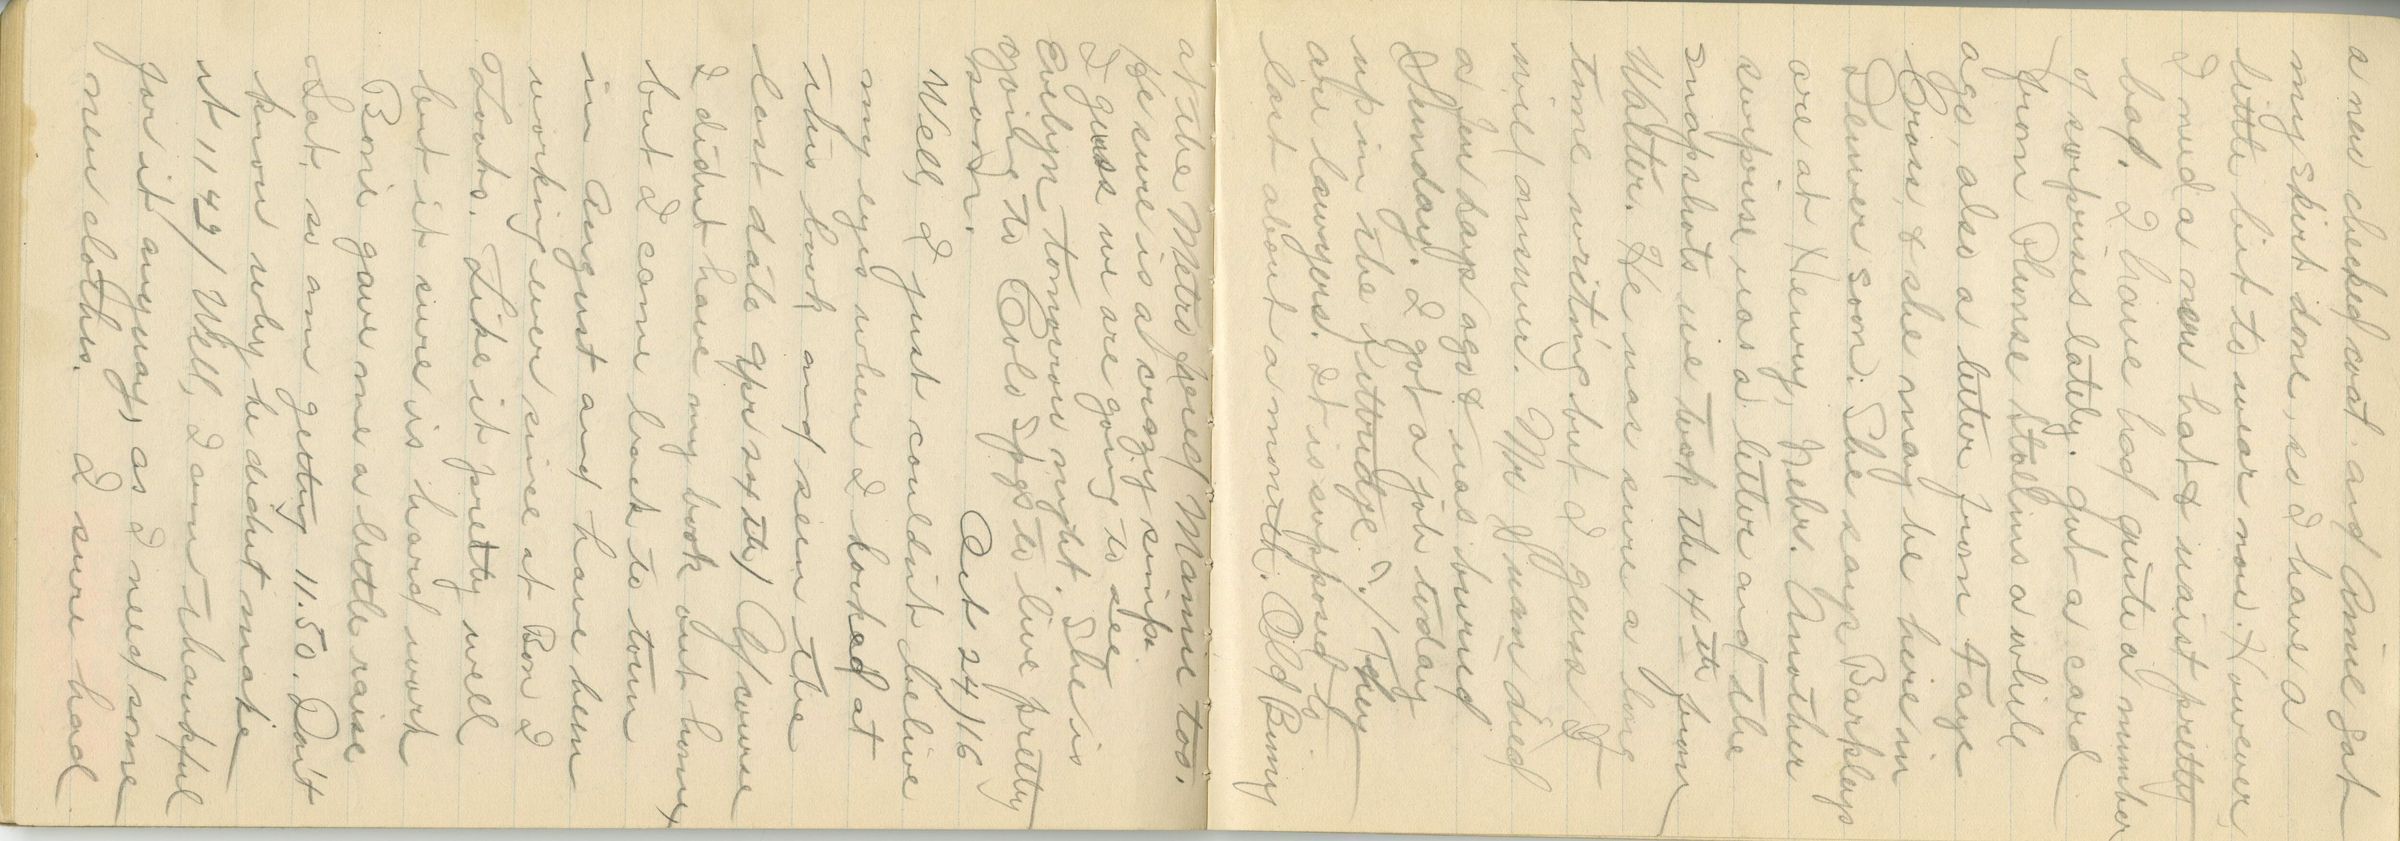 a new checked coat and Connie got
my skirt done, so I have a
little bit to wear now. However,
I need a new hat & waist pretty
bad. I have had quite a number
of surprises lately. Got a card
from Blonse Stoelins a while
ago, also a letter from Faye
Cross, & she may be here in
Denver soon. She says Barkleys
are at Henry, Nebr. Another
surprise was a letter and the
snapshots we took the 4th from
Walter. He was sure a long
time writing but I guess I
will answer. Mr Juan died
a few days ago & was buried
Sunday. I got a job today
up in the Kittredge. They
are lawyers. It is supposed to
last about a month. Old Binny
at the Metro fired Mamie too.
He sure is a crazy simp.
I guess we are going to see
Evelyn tomorrow night. She is
going to Colo Spgs to live pretty
soon.
Oct 24/16
Well, I just couldn't believe
my eyes when I looked at
this book and seen the
last date Apr sixth! Of course
I didn't have my book out home,
but I come back to town
in August and have been
working ever since at Bon I
Looks. Like it pretty well
but it sure is hard work
Boni gave me a little raise
Sat, so am getting 11.50. Don't
know why he didn't make
it 11 49! Well, I am thankful
for it anyway, as I need some
new clothes. I sure had